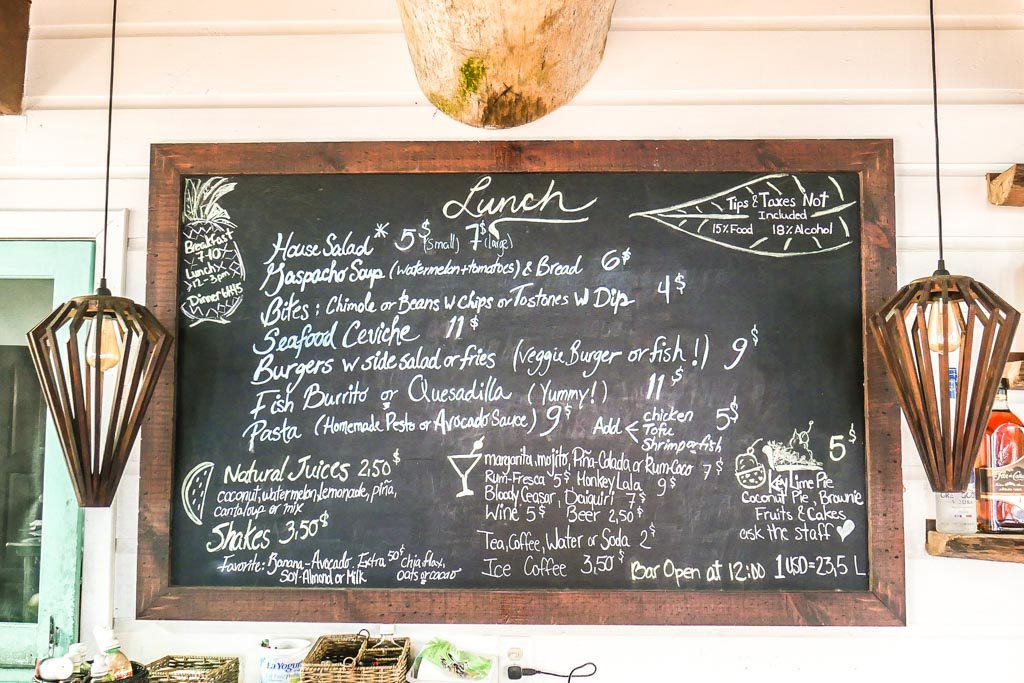 Lunch
Tips & Taxes Not
Included
15% Food 18% Alcohol
Breakfast
7-10
Lunch
12-3pm
House Salad* 5$ (small) 7$ (large)
Gaspacho Soup (watermelon+tomatoes) & Bread 6$
Bites: Chimole or Beans w Chips or Tostones w Dip 4$
Seafood Ceviche 11$
Burgers w side salad or fries (veggie Burger or fish!) 9$
Fish Burrito or Quesadilla (Yummy!) 11$
Pasta (Homemade Pesto or Avocado Sauce) 9$ Add < chicken 5$
Tofu
Shrimp or fish
Natural Juices 2,50$
coconut, watermelon, lemonade, piña,
cantaloup or mix
Shakes 3,50$
Favorite: Banana-Avocado. Extra 50$ Chia, flax,
Soy-Almond or Milk oats or cacao
margarita, mojito, Piña-Colada, or Rum-Coco 7$
Rum-Fresca 5$ Monkey Lala 9$
Bloody Ceasar, Daiquiri 7$
Wine 5$ Beer 2,50$
Tea, Coffee, Water or Soda 2$
Ice Coffee 3,50$
5$
Key Lime Pie
Coconut Pie, Brownie
Fruits & Cakes
ask the staff
Bar Open at 12:00 1USD=23,5 L
La Yogurt